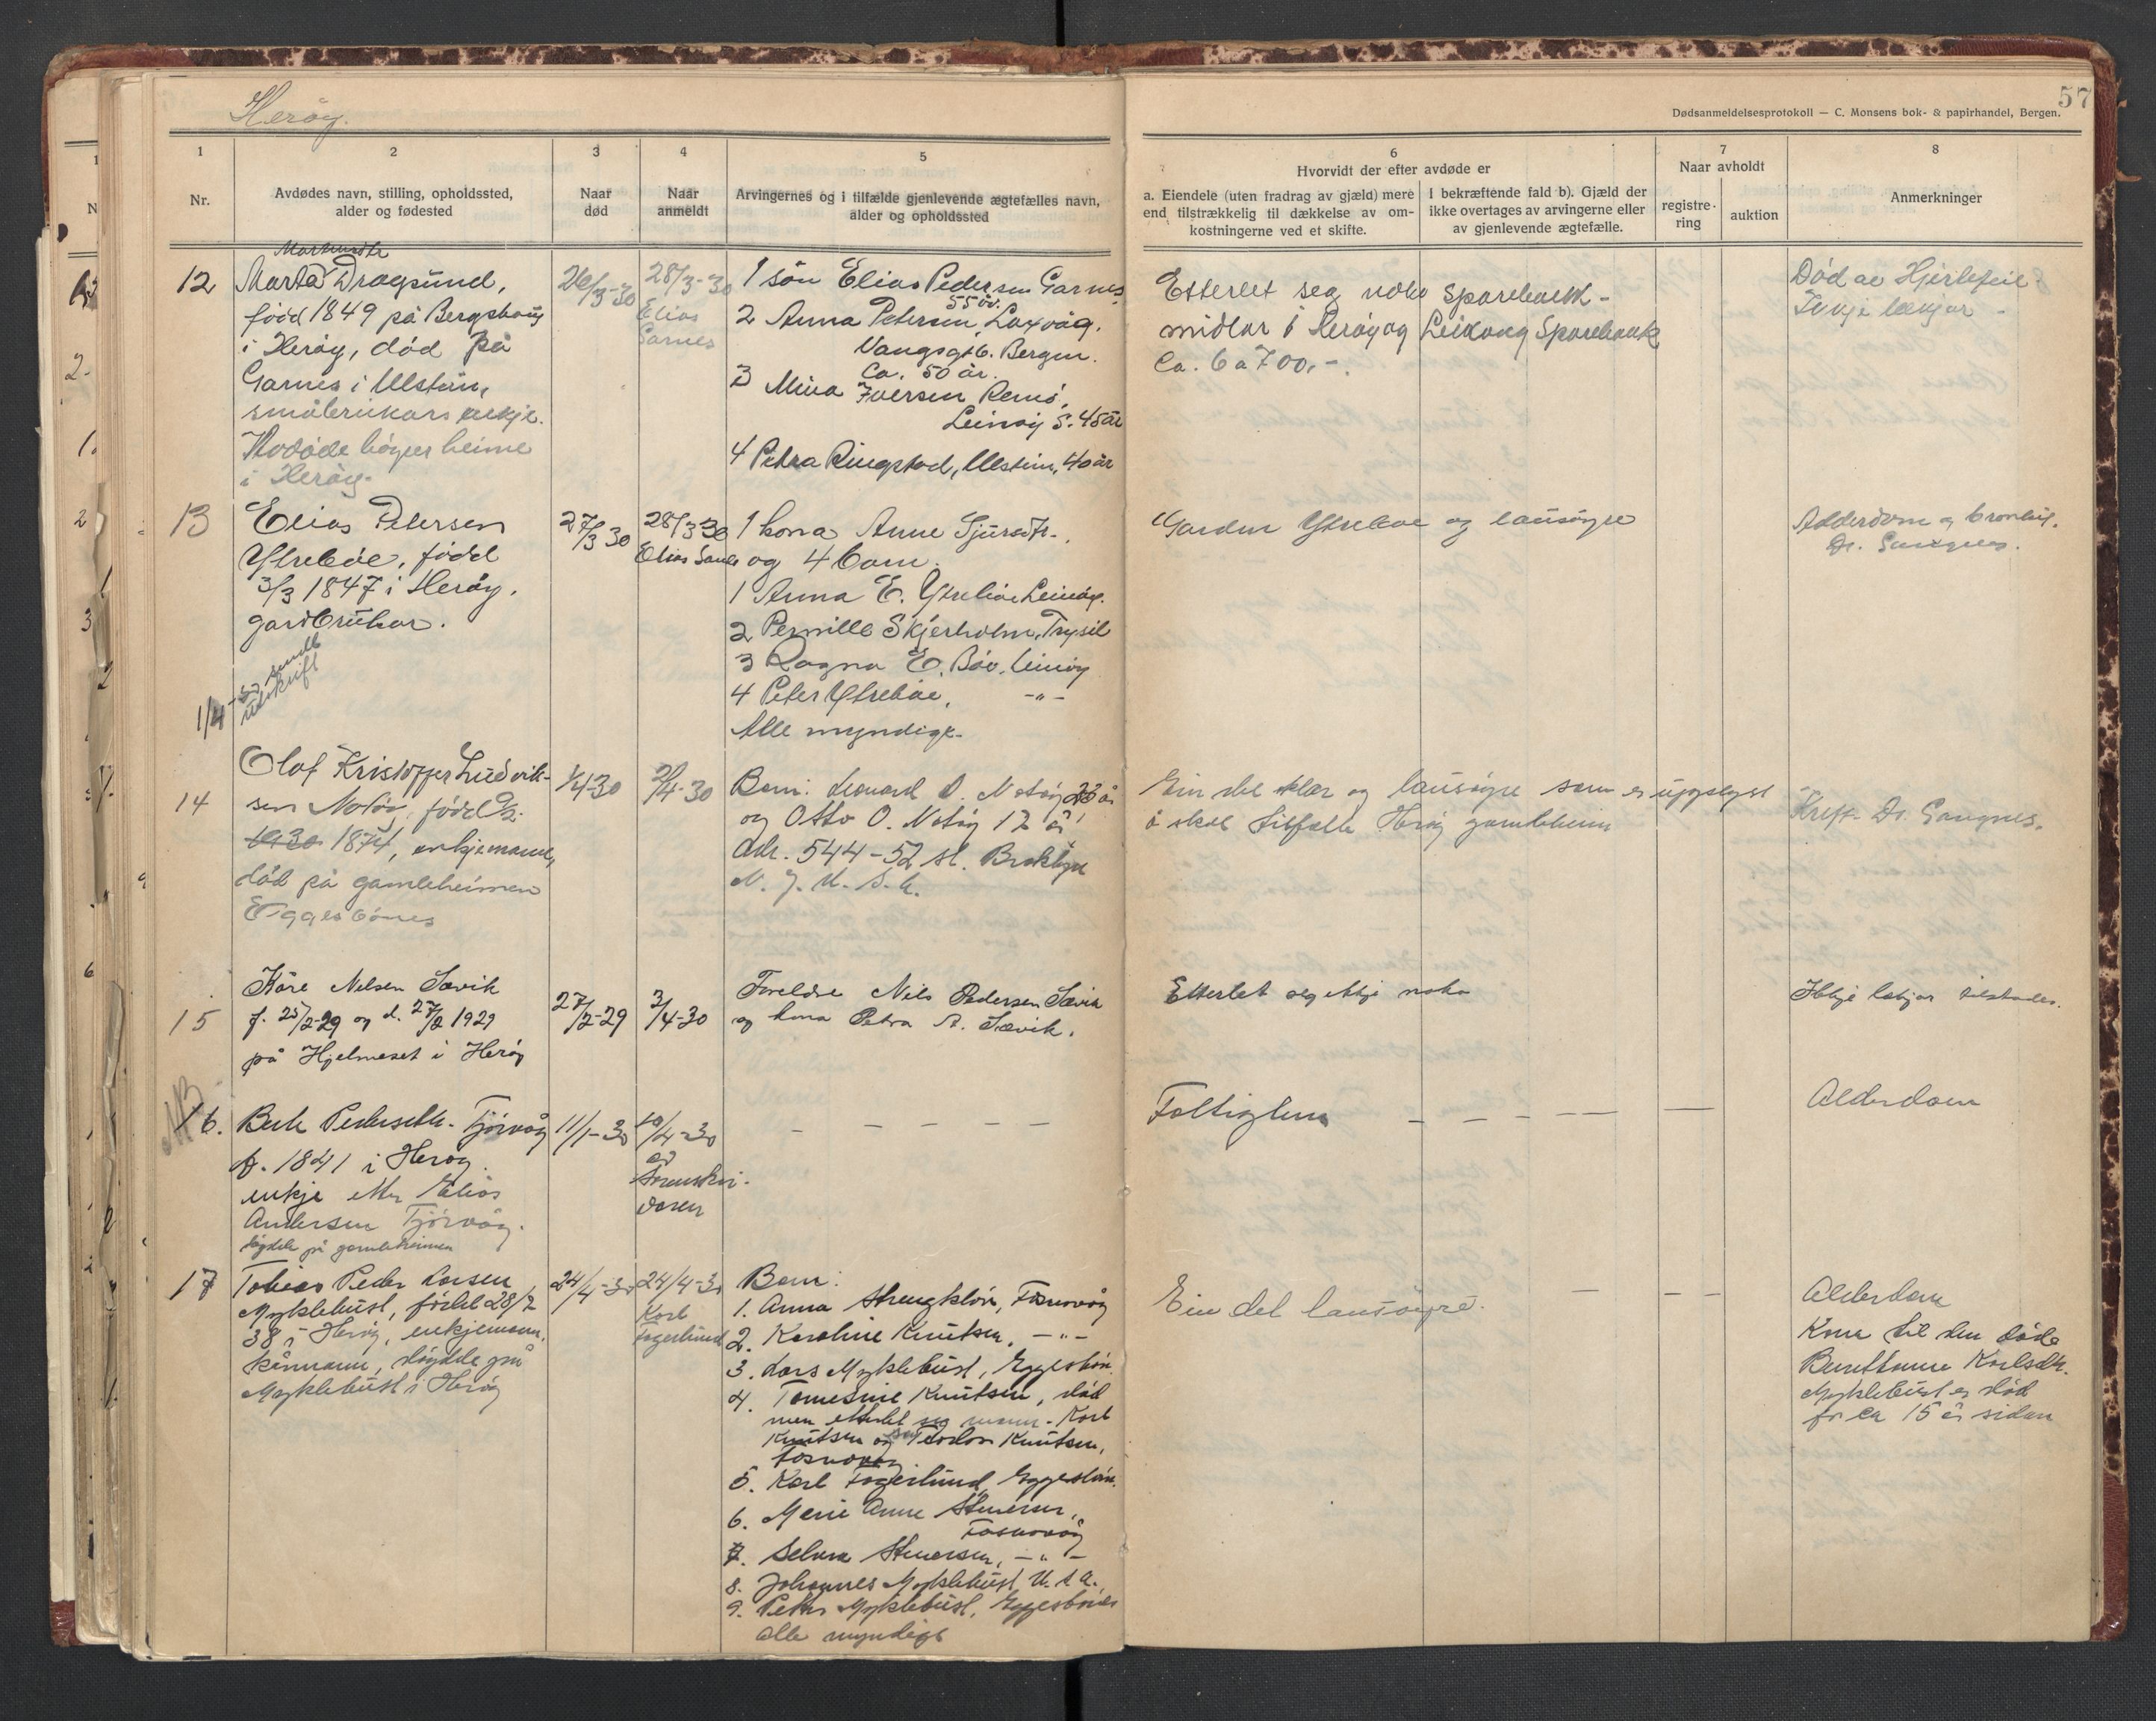 Herøy.
57
Dødsanmeldelsesprotokoll — C. Monsens bok- & papirhandel, Bergen.
1
Nr.
2
Avdødes navn, stilling, opholdssted,
alder og fødested
3
Naar
død
4
Naar
anmeldt
5
Arvingernes og i tilfælde gjenlevende ægtefælles navn,
alder og opholdssted
6
Hvorvidt der efter avdøde er
a. Eiendele (uten fradrag av gjæld) mere
end tilstrækkelig til dækkelse av om-
kostningerne ved et skifte.
I bekræftende fald b). Gjæld der
ikke overtages av arvingerne eller
av gjenlevende ægtefælle.
7
Naar avholdt
registre-
ring
auktion
8
Anmerkninger
12
Marta Dragsund,
fødd 1849 på Bergshaug
i Herøy, død på
Garnes i Ulstein,
småbrukars enkje.
Avdøde høyrer heime
i Herøy.
26/3-30
28/3-30
Elias
Garnes
1 søn Elias Pedersen Garnes
55 år.
2 Anna Petersen, Laxvåg,
Vangsgt 6. Bergen.
Ca. 50 år.
3 Mina Iversen Remø,
Leinøy S. 45 år
4 Petra Ringstad, Ulstein, 40 år
Etterlet seg noko Sparebank-
midlar i Herøy og Leikong Sparebank
Ca. 6 a 700,-.
Død av Hjertefeil.
Ikkje lækjar -
13
Elias Petersen
Ytrebøe, fødd
3/3 1847 i Herøy.
gardbrukar.
1/4-30 sendt
utskrift
27/3 30
28/3 30
Elias
1 kona Anne Sjursdtr.
og 4 born.
1 Anna E. Ytrebøe Leinøy.
2 Pernille Skjerholm, Trysil
3 Ragna E. Bøe, Leinøy
4 Peter Ytrebøe, -"-
Alle myndige.
Garden Ytrebøe og lausøyre
Alderdom og bronkit.
Dr.
14
Olaf Kristoffer Ludvik-
sen Notøy, fødd
1874, enkjemann,
død på gamleheimen
Eggesbønes
1/4-30
2/4-30
Born: Leonard O. Notøy 23 år
og Otto O. Notøy 17 år
Adr. 544-52 st. Broklyn
N. J. U. S. A.
Ein del klær og lausøyre som er upplyst
å skal tilfalle Herøy gamleheim
Kreft. Dr. Gangnes.
15
Kåre Nelsen Sævik
f. 25/2-29 og d. 27/2 1929
på Hjelmeset i Herøy
27/2-29
3/4-30
Foreldre Nils Pedersen Sævik
og kona Petra A. Sævik.
Etterlet seg ikkje noko
Ikkje lækjar tilstades.
NB
16.
Berte Pedersdtr. Tjørvåg
f. 1841 i Herøy.
enkje etter Elias
Andersen Tjørvåg.
døydde på gamleheimen
11/1-30
10/4-30
av
Sorenskri-
varen
- - - - -
Fattiglem - - - - - -
Alderdom
17
Tobias Peder Larsen
Myklebust, fødd 28/2
38 i Herøy, enkjemann,
kårmann, døydde på
Myklebust i Herøy
24/4-30
24/4-30
Karl
Fagerlund
Born:
1. Anna Strengkløv, Fosnavåg
2. Karoline Knutsen, -"-
3. Lars Myklebust, Eggesbøn.
4. Tomesine Knutsen, død
men etterlet seg mann - Karl
Knutsen og søn Teodor Knutsen,
Fosnavåg
5. Karl Fagerlund, Eggesbøn.
6. Marie Anne Stuersen,
Fosnavåg
7. Selma Stuersen, -"-
8. Johannes Myklebust, U.S.A.
9. Petter Myklebust, Eggesbønes
alle myndige
Ein del lausøyre. - - -
Alderdom
Kona til den døde
Karlsdtr.
Myklebust er død
for ca 15 år sidan